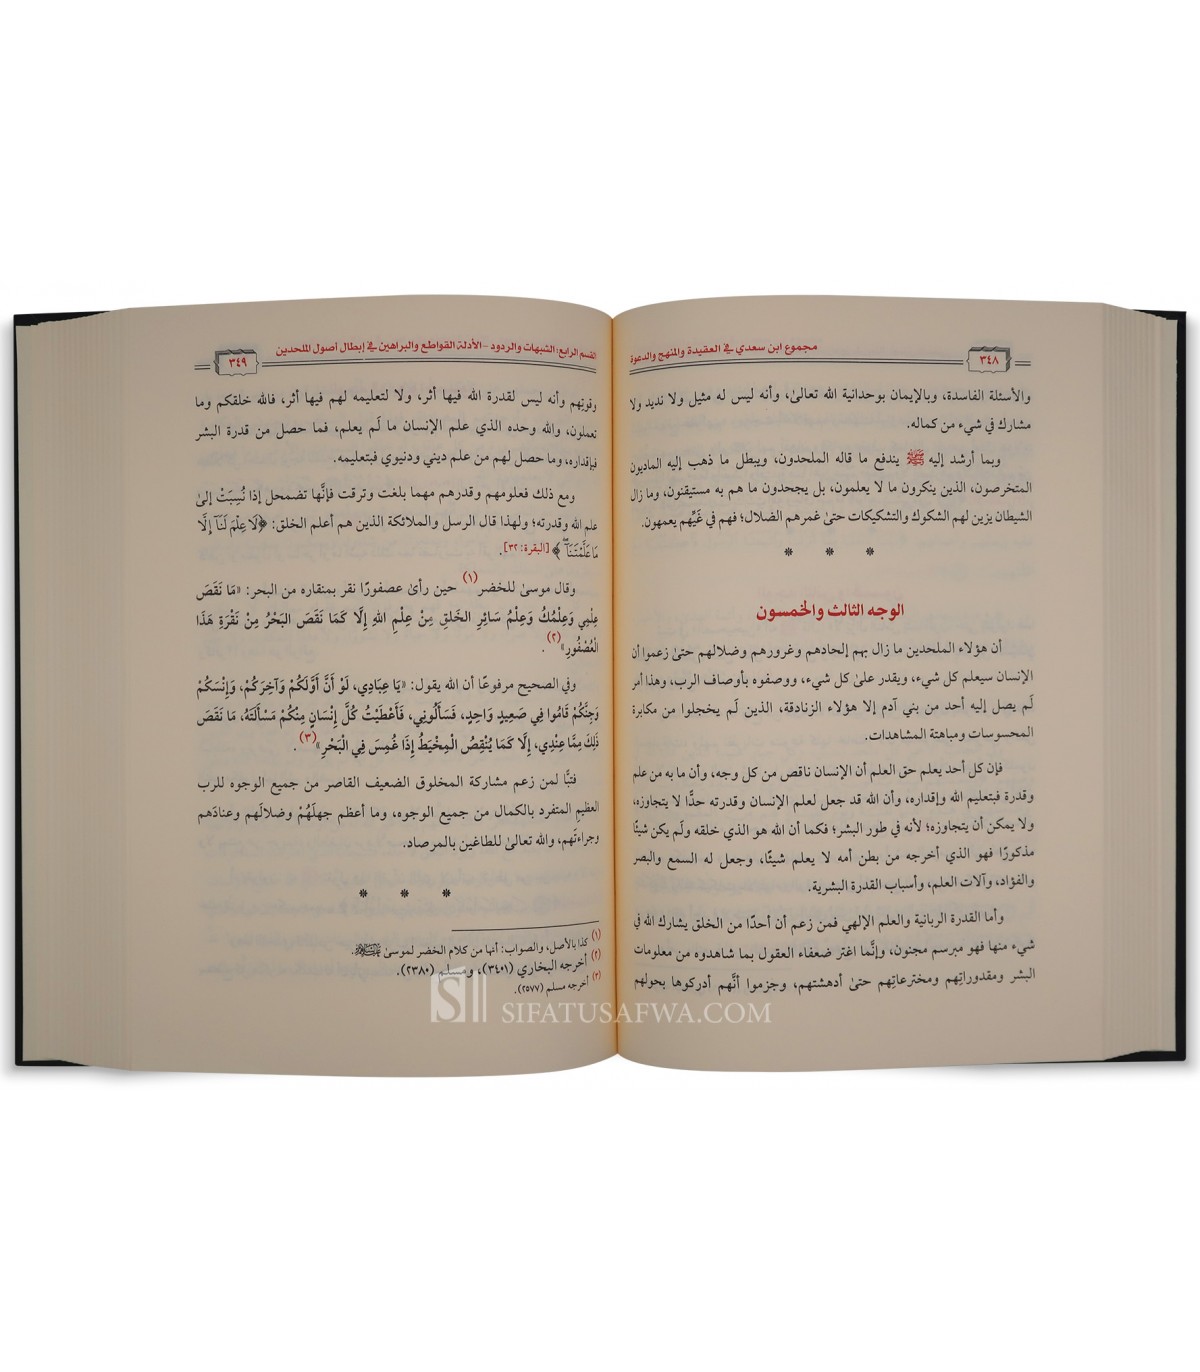 مجموع ابن سعدي في العقيدة والمنهج والدعوة
٣٤٨
والأسئلة الفاسدة، وبالإيمان بوحدانية الله تعالىٰ، وأنه ليس له مثيل ولا نديد ولا
مشارك في شيء من كماله.
وبما أرشد إليه ﷺ يندفع ما قاله الملحدون، ويبطل ما ذهب إليه الماديون
المتخرصون، الذين ينكرون ما لا يعلمون، بل يجحدون ما هم به مستيقنون، وما زال
الشيطان يزين لهم الشكوك والتشكيكات حتىٰ غمرهم الضلال؛ فهم في غَيِّهم يعمهون.
* * *
الوجه الثالث والخمسون
أن هؤلاء الملحدين ما زال بهم إلحادهم وغرورهم وضلالهم حتىٰ زعموا أن
الإنسان سيعلم كل شيء، ويقدر علىٰ كل شيء، ووصفوه بأوصاف الرب، وهذا أمر
لَم يصل إليه أحد من بني آدم إلا هؤلاء الزنادقة، الذين لَم يخجلوا من مكابرة
المحسوسات ومباهتة المشاهدات.
فإن كل أحد يعلم حق العلم أن الإنسان ناقص من كل وجه، وأن ما به من علم
وقدرة فبتعليم الله وإقداره، وأن الله قد جعل لعلم الإنسان وقدرته حدًّا لا يتجاوزه،
ولا يمكن أن يتجاوزه؛ لأنه في طور البشر؛ فكما أن الله هو الذي خلقه ولَم يكن شيئًا
مذكورًا فهو الذي أخرجه من بطن أمه لا يعلم شيئًا، وجعل له السمع والبصر
والفؤاد، وآلات العلم، وأسباب القدرة البشرية.
وأما القدرة الربانية والعلم الإلهي فمن زعم أن أحدًا من الخلق يشارك الله في
شيء منها فهو مبرسم مجنون، وإنَّما اغتر ضعفاء العقول بما شاهدوه من معلومات
البشر ومقدوراتِهم ومخترعاتِهم حتىٰ أدهشتهم، وجزموا أنَّهم أدركوها بحولهم
القسم الرابع: الشبهات والردود - الأدلة القواطع والبراهين في إبطال أصول الملحدين
٣٤٩
وقوتِهم وأنه ليس لقدرة الله فيها أثر، ولا لتعليمه لهم فيها أثر، فالله خلقكم وما
تعملون، والله وحده الذي علم الإنسان ما لَم يعلم، فما حصل من قدرة البشر
فبإقداره، وما حصل لهم من علم ديني ودنيوي فبتعليمه.
ومع ذلك فعلومهم وقدرهم مهما بلغت وترقت فإنَّها تضمحل إذا نُسِبَتْ إلىٰ
علم الله وقدرته؛ ولهذا قال الرسل والملائكة الذين هم أعلم الخلق: ﴿لَا عِلْمَ لَنَآ إِلَّا
مَا عَلَّمْتَنَآ﴾ [البقرة: ٣٢].
وقال موسىٰ للخضر(١) حين رأىٰ عصفورًا نقر بمنقاره من البحر: «مَا نَقَصَ
عِلْمِي وَعِلْمُكَ وَعِلْمُ سَائِرِ الخَلقِ مِنْ عِلْمِ اللهِ إِلَّا كَمَا نَقَصَ البَحْرُ مِنْ نَقْرَةِ هَذَا
الْعُصْفُورِ»(٢).
وفي الصحيح مرفوعًا أن الله يقول: «يَا عِبَادِي، لَوْ أَنَّ أَوَّلَكُمْ وَآخِرَكُمْ، وَإِنْسَكُمْ
وَجِنَّكُمْ قَامُوا فِي صَعِيدٍ وَاحِدٍ، فَسَأَلُونِي، فَأَعْطَيْتُ كُلَّ إِنْسَانٍ مِنْكُمْ مَسْأَلَتَهُ، مَا نَقَصَ
ذَلِكَ مِمَّا عِنْدِي، إِلَّا كَمَا يُنْقِصُ الْمِخْيَطُ إِذَا غُمِسَ فِي الْبَحْرِ»(٣).
فتبًّا لمن زعم مشاركة المخلوق الضعيف القاصر من جميع الوجوه للرب
العظيمِ المتفرد بالكمال من جميع الوجوه، وما أعظم جهلَهُمْ وضلالَهم وعنادَهم
وجراءتَهم، والله تعالىٰ للطاغين بالمرصاد.
* * *
(١) كذا بالأصل، والصواب: أنها من كلام الخضر لموسىٰ
(٢) أخرجه البخاري (٣٤٠١)، ومسلم (٢٣٨٠).
(٣) أخرجه مسلم (٢٥٧٧).
SIFATUSAFWA.COM